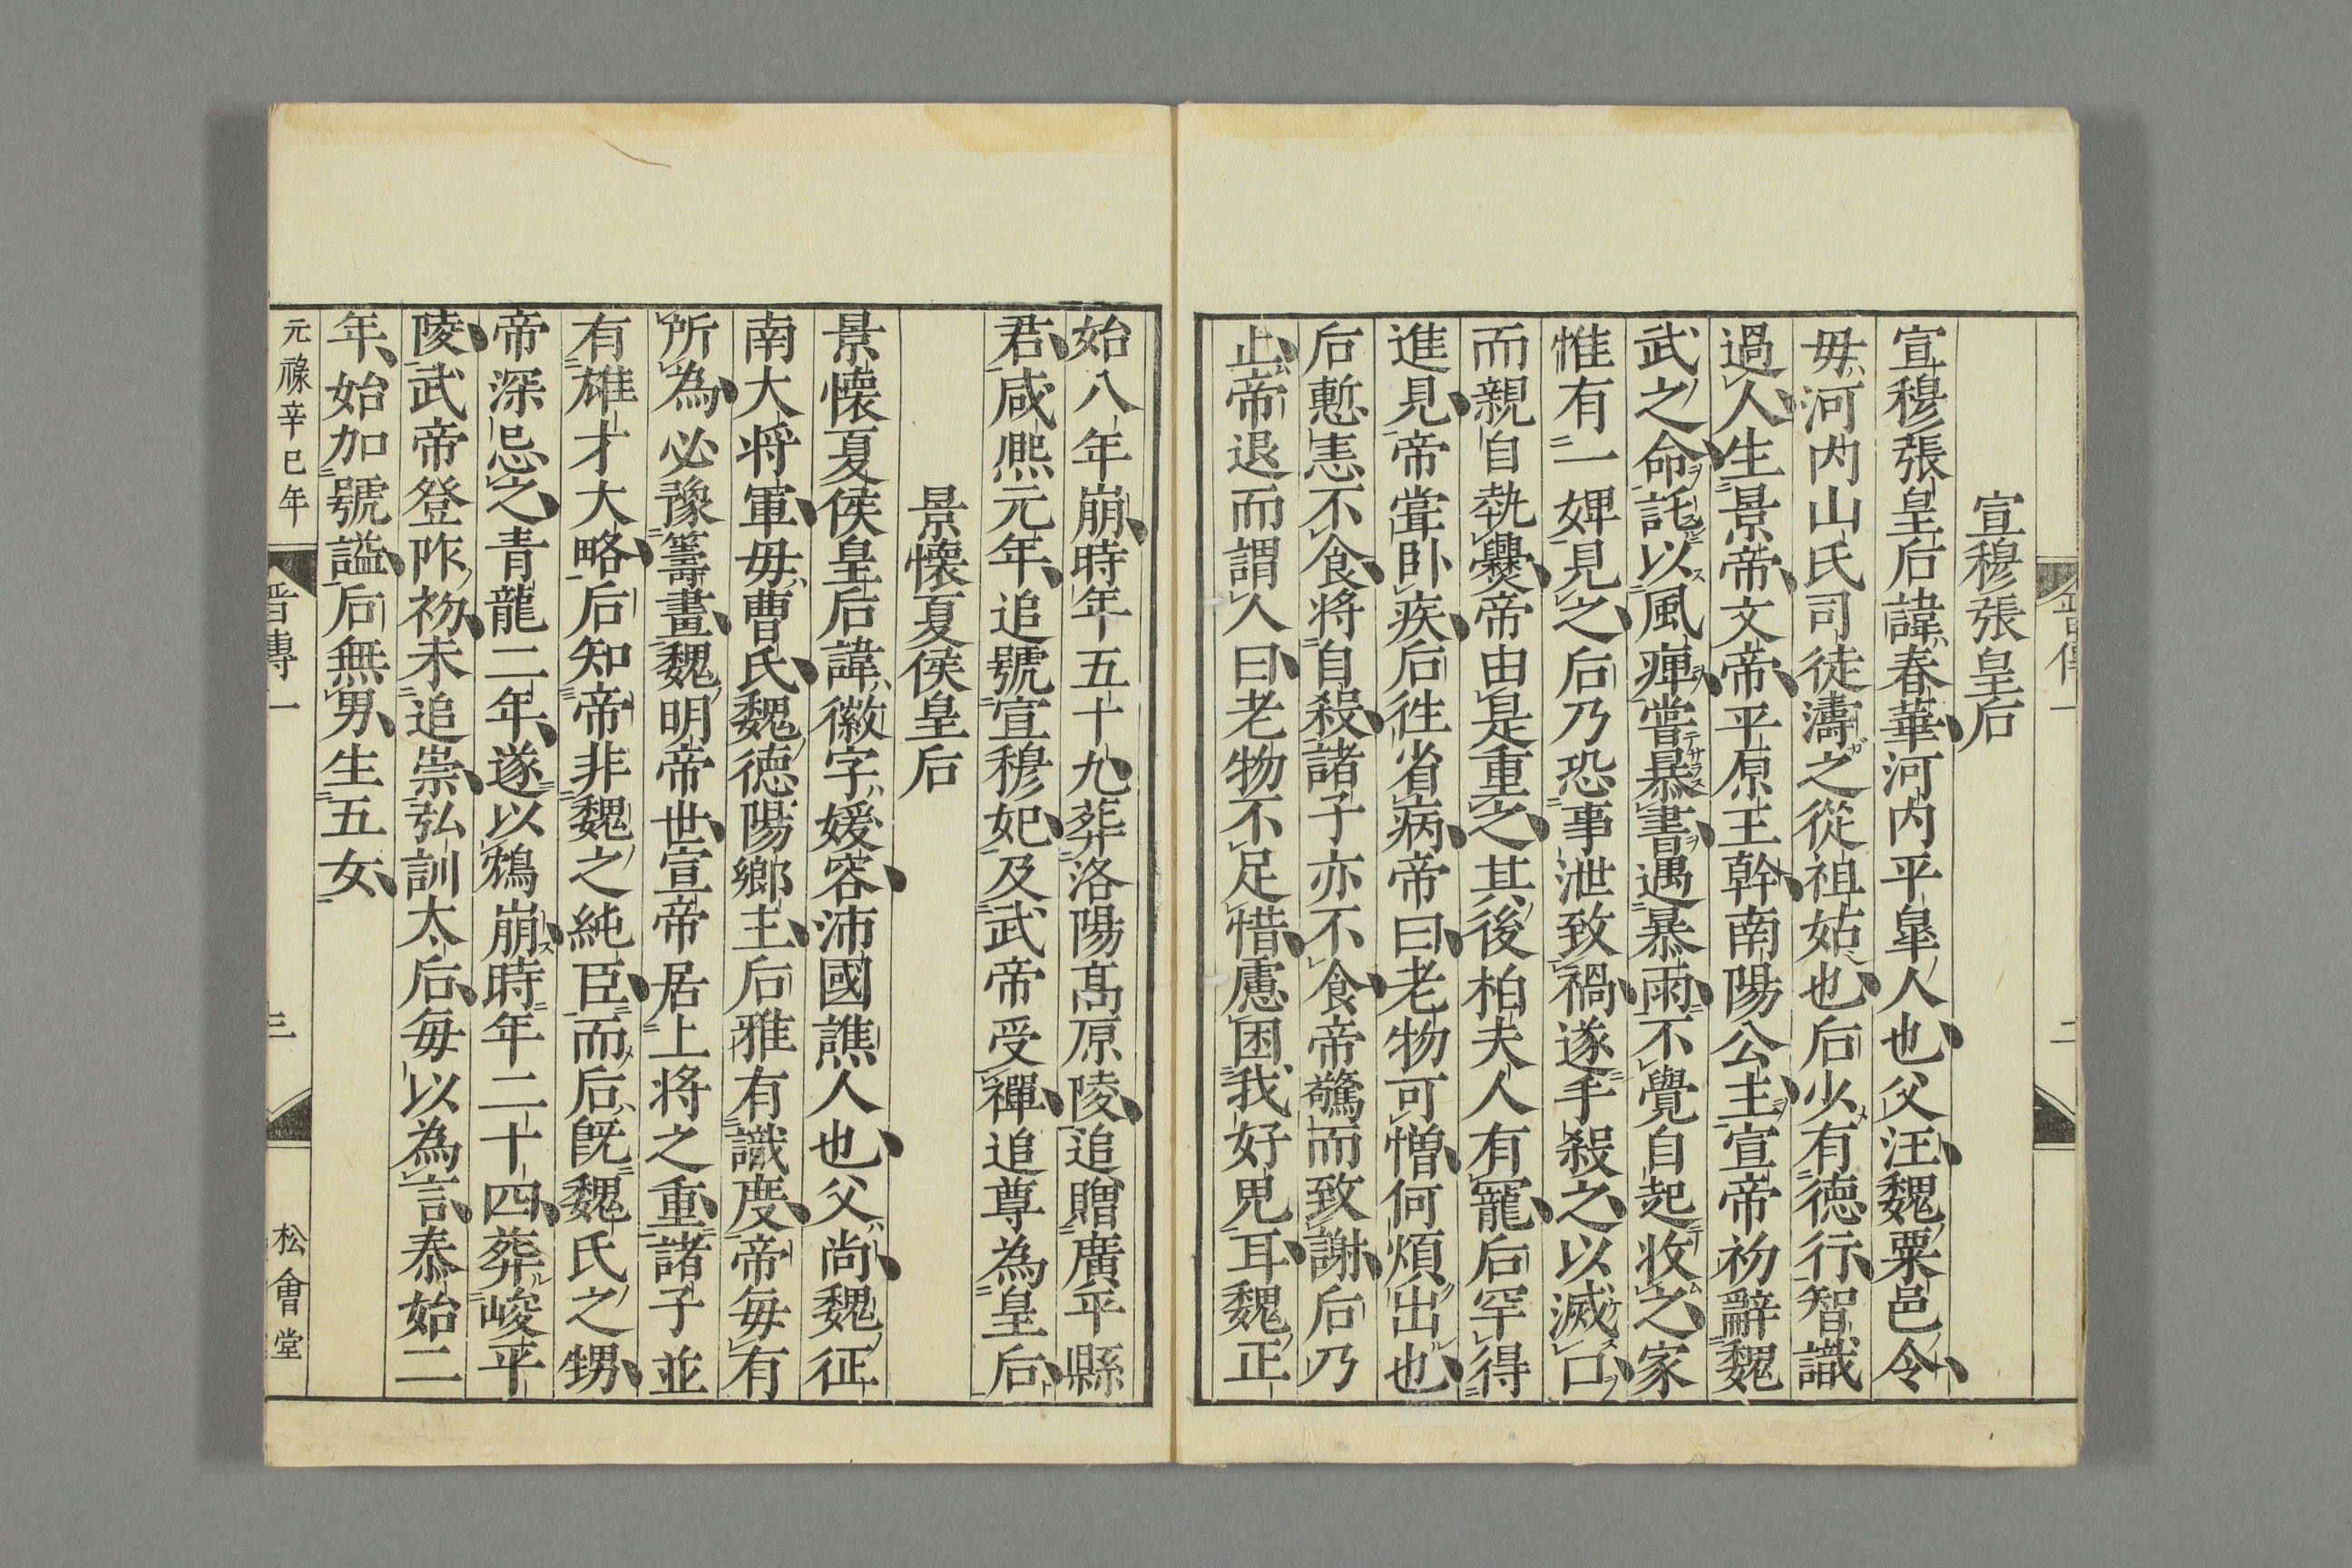 晉傳一
二
宣穆張皇后
宣穆張皇后諱春華河内平皐人也父汪魏粟邑令
毋河内山氏司徒濤之從祖姑也后少有德行智識
過人生景帝文帝平原王幹南陽公主宣帝初辭魏
武之命託以風痺嘗暴書遇暴雨不覺自起收之家
惟有一婢見之后乃恐事泄致禍遂手殺之以滅口
而親自執爨帝由是重之其後柏夫人有寵后罕得
進見帝甞卧疾后徃省病帝曰老物可憎何煩出也
后慙恚不食将自殺諸子亦不食帝驚而致謝后乃
止帝退而謂人曰老物不足惜慮困我好兒耳魏正
始八年崩時年五十九葬洛陽髙原陵追贈廣平縣
君咸熈元年追號宣穆妃及武帝受禪追尊為皇后
景懐夏侯皇后
景懐夏侯皇后諱徽字媛容沛國譙人也父尚魏征
南大将軍毋曹氏魏德陽鄉主后雅有識度帝毎有
所為必豫籌畫魏明帝世宣帝居上将之重諸子並
有雄才大略后知帝非魏之純臣而后既魏氏之甥
帝深忌之青龍二年遂以鴆崩時年二十四葬峻平
陵武帝登阼初未追崇弘訓太后毎以為言泰始二
年始加號謚后無男生五女
元祿辛巳年
晉傳一
三
松會堂